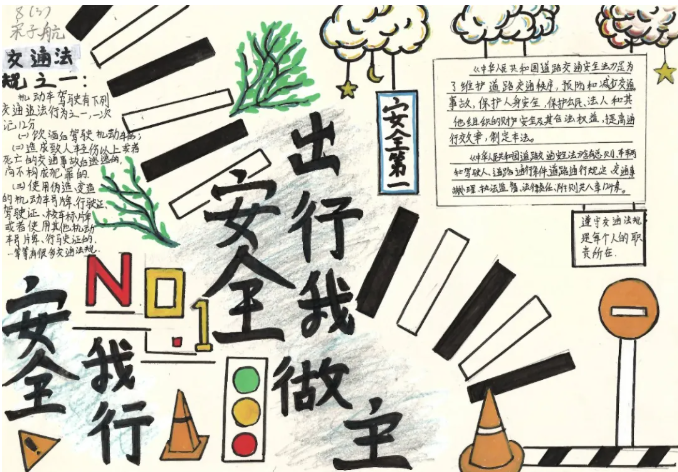 8(3)
宋子航
交通法
规之一：
机动车驾驶有下列
交通违法行为之一，一次
记12分
(一)饮酒后驾驶机动车的；
(二)造成致人轻伤以上或者
死亡的交通事故后逃逸的，
尚不构成犯罪的
(三)使用伪造、变造
的机动车号牌、行驶证、
驾驶证、校车标牌
或者使用其他机动
车号牌、行驶证的
NO.1
安全
我行
安全
出行我做主
安全第一
《中华人民共和国道路交通安全法》为
了维护道路交通秩序，预防和减少交通
事故，保护人身安全，保护公民、法人和其
他组织的财产安全及其合法权益，提高通
行效率，制定本法。
《中华人民共和国道路交通安全法》
和驾驶人、道路通行条件、道路通行规定、交通事
遵守交通法规
是每个人的职
责所在